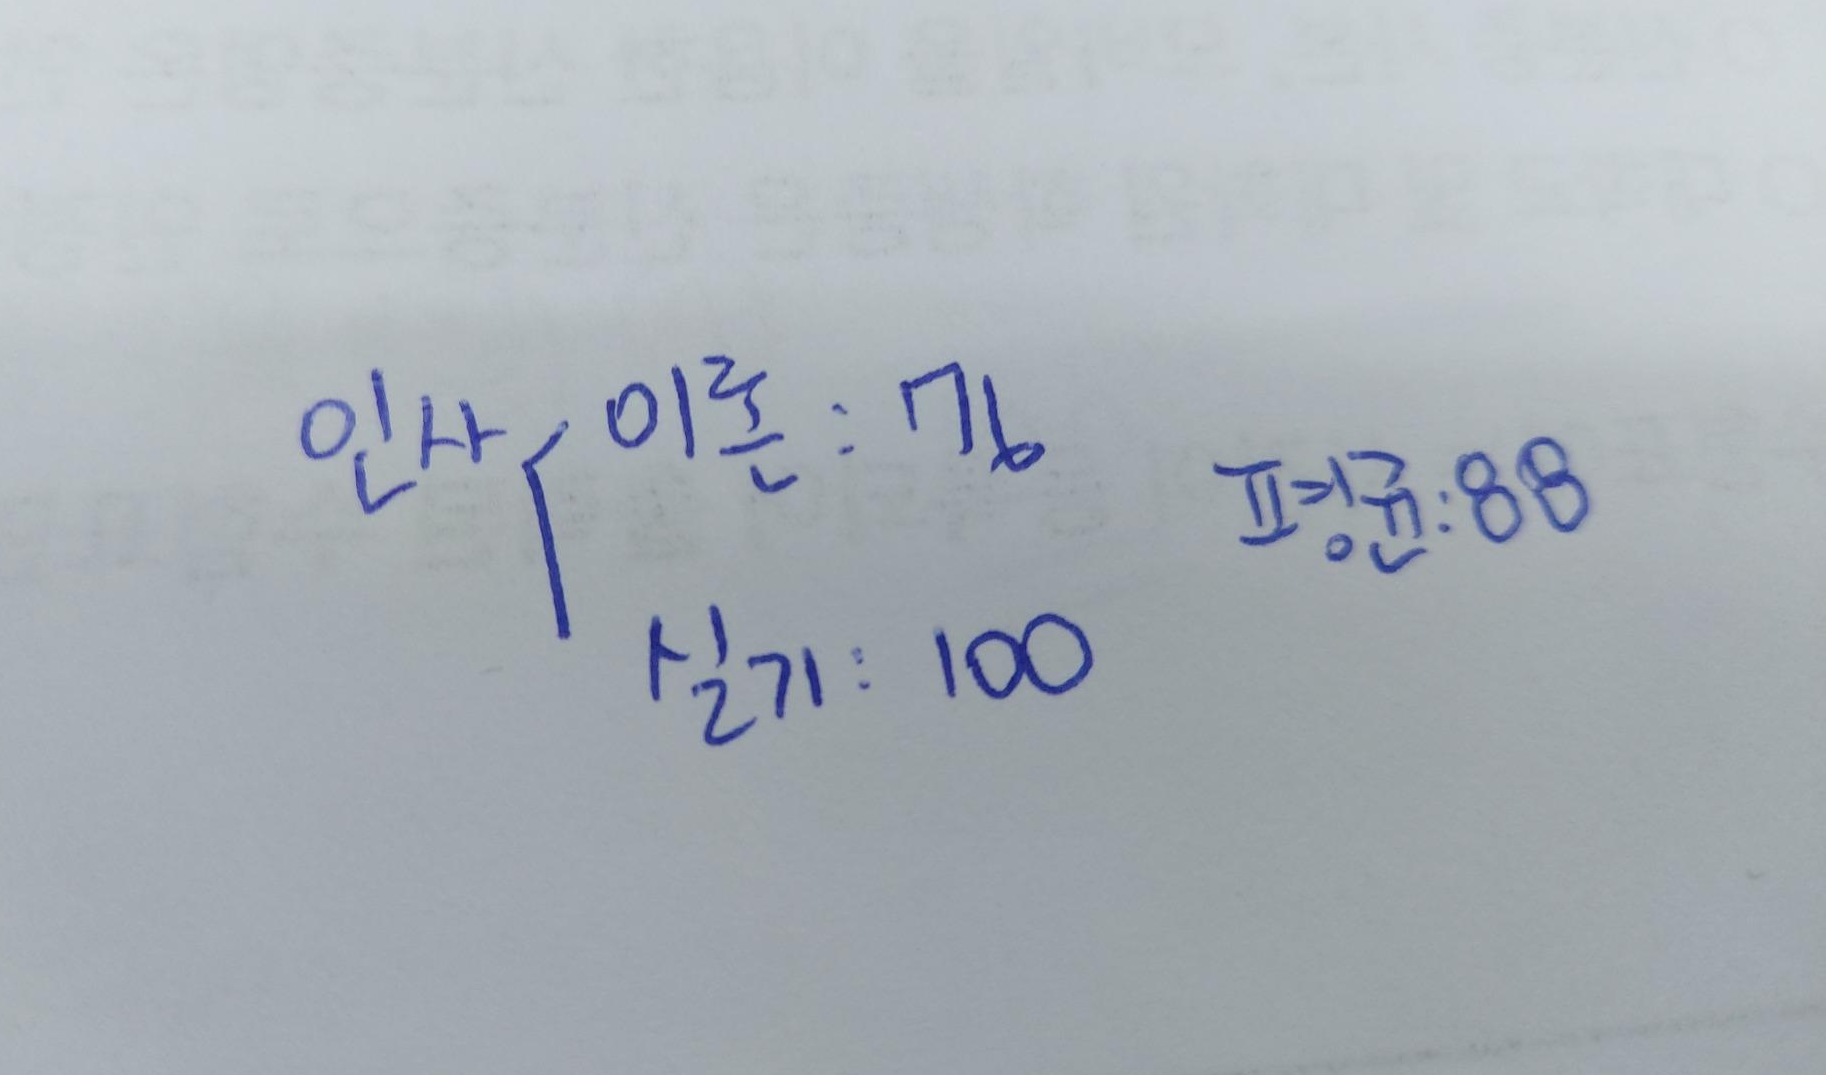 인사 이론 : 76
평균 : 88
실기 : 100